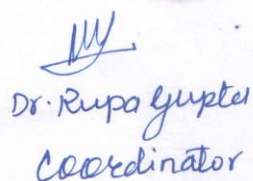 Dr. Rupa Gupta
Coordinator